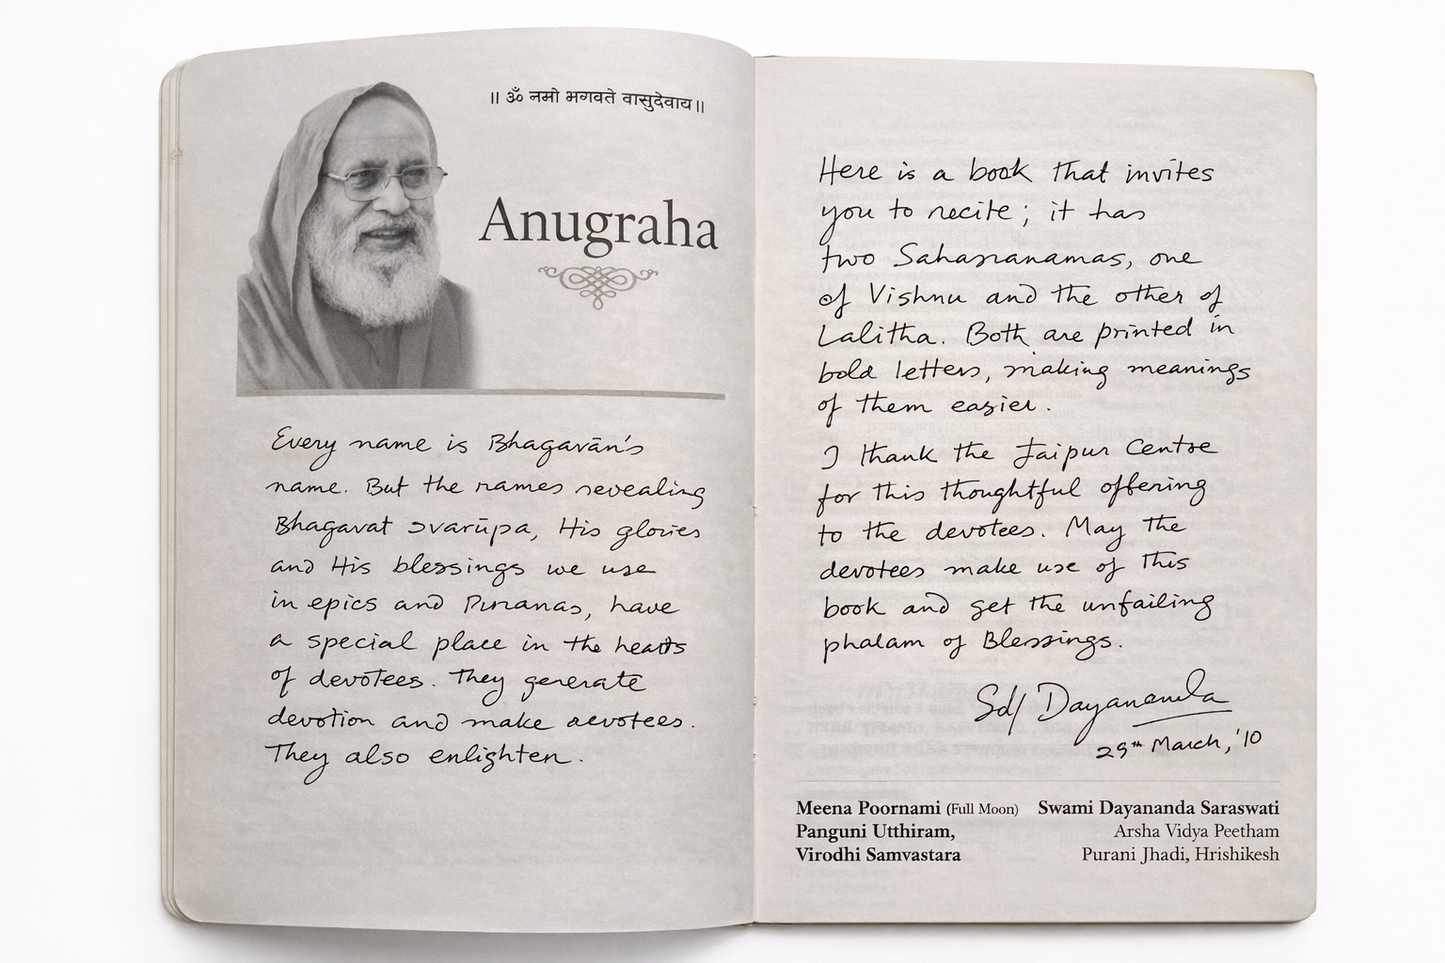 ॥ ॐ नमो भगवते वासुदेवाय॥
Anugraha
Every name is Bhagavān's
name. But the names revealing
Bhagavat svarūpa, His glories
and His blessings we use
in epics and Puranas, have
a special place in the hearts
of devotees. They generate
devotion and make devotees.
They also enlighten.
Here is a book that invites
you to recite; it has
two Sahasranamas, one
of Vishnu and the other of
Lalitha. Both are printed in
bold letters, making meanings
of them easier.
I thank the Jaipur Centre
for this thoughtful offering
to the devotees. May the
devotees make use of this
book and get the unfailing
phalam of Blessings.
Sd/ Dayananda
29th March, '10
Meena Poornami (Full Moon) Swami Dayananda Saraswati
Panguni Utthiram, Arsha Vidya Peetham
Virodhi Samvastara Purani Jhadi, Hrishikesh